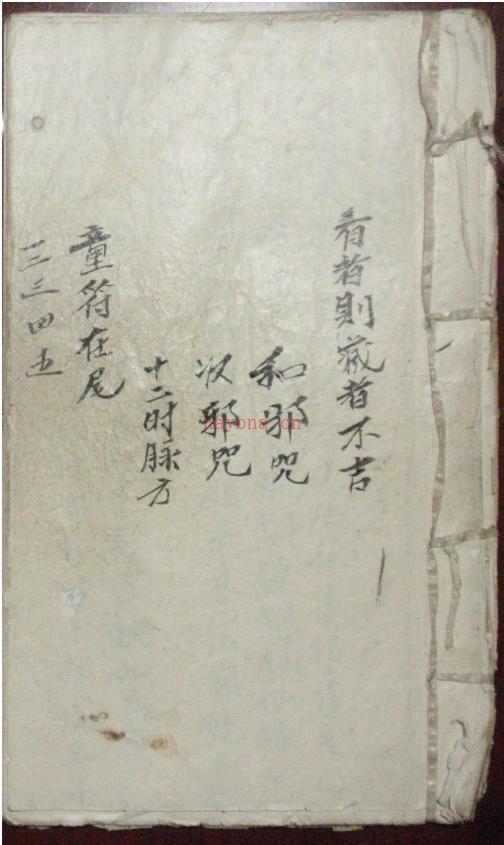 看者則藏者不吉
和邪咒
收邪咒
十二时脉方
童符在尾
一二三四五